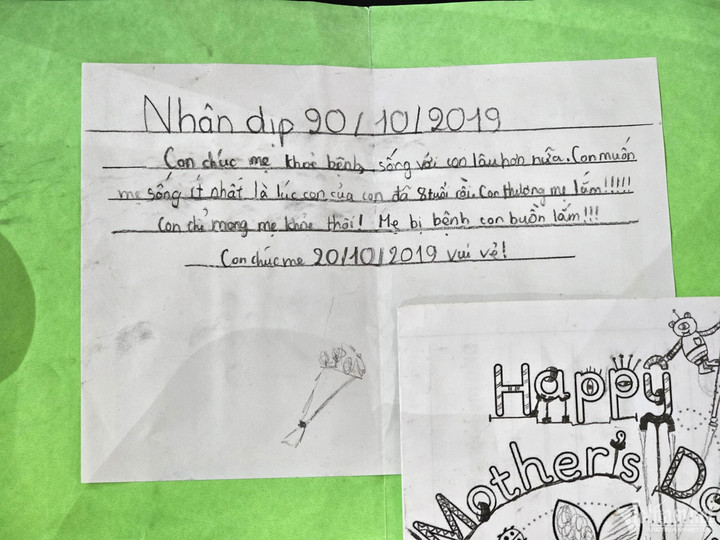 Nhân dịp 20/10/2019
Con chúc mẹ khoẻ bệnh, sống với con lâu hơn nữa. Con muốn
mẹ sống ít nhất là lúc con của con đã 8 tuổi rồi. Con thương mẹ lắm!!!!!
Con chỉ mong mẹ khỏe thôi! Mẹ bị bệnh con buồn lắm!!!
Con chúc mẹ 20/10/2019 vui vẻ!
Happy
Mother's Da